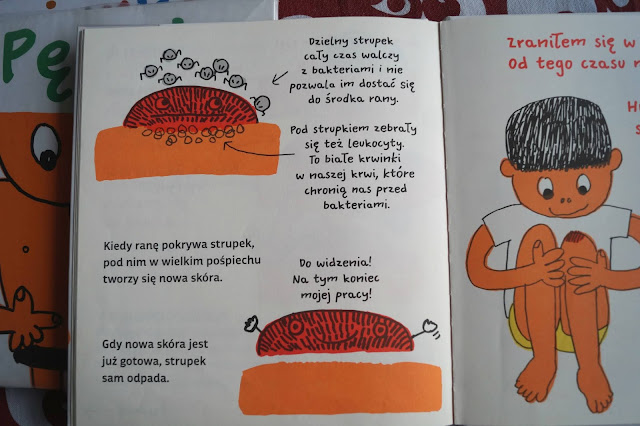 Pę
Dzielny strupek
cały czas walczy
z bakteriami i nie
pozwala im dostać się
do środka rany.
Pod strupkiem zebrały
się też leukocyty.
To białe krwinki
w naszej krwi, które
chronią nas przed
bakteriami.
Kiedy ranę pokrywa strupek,
pod nim w wielkim pośpiechu
tworzy się nowa skóra.
Do widzenia!
Na tym koniec
mojej pracy!
Gdy nowa skóra jest
już gotowa, strupek
sam odpada.
Zraniłem się w
Od tego czasu